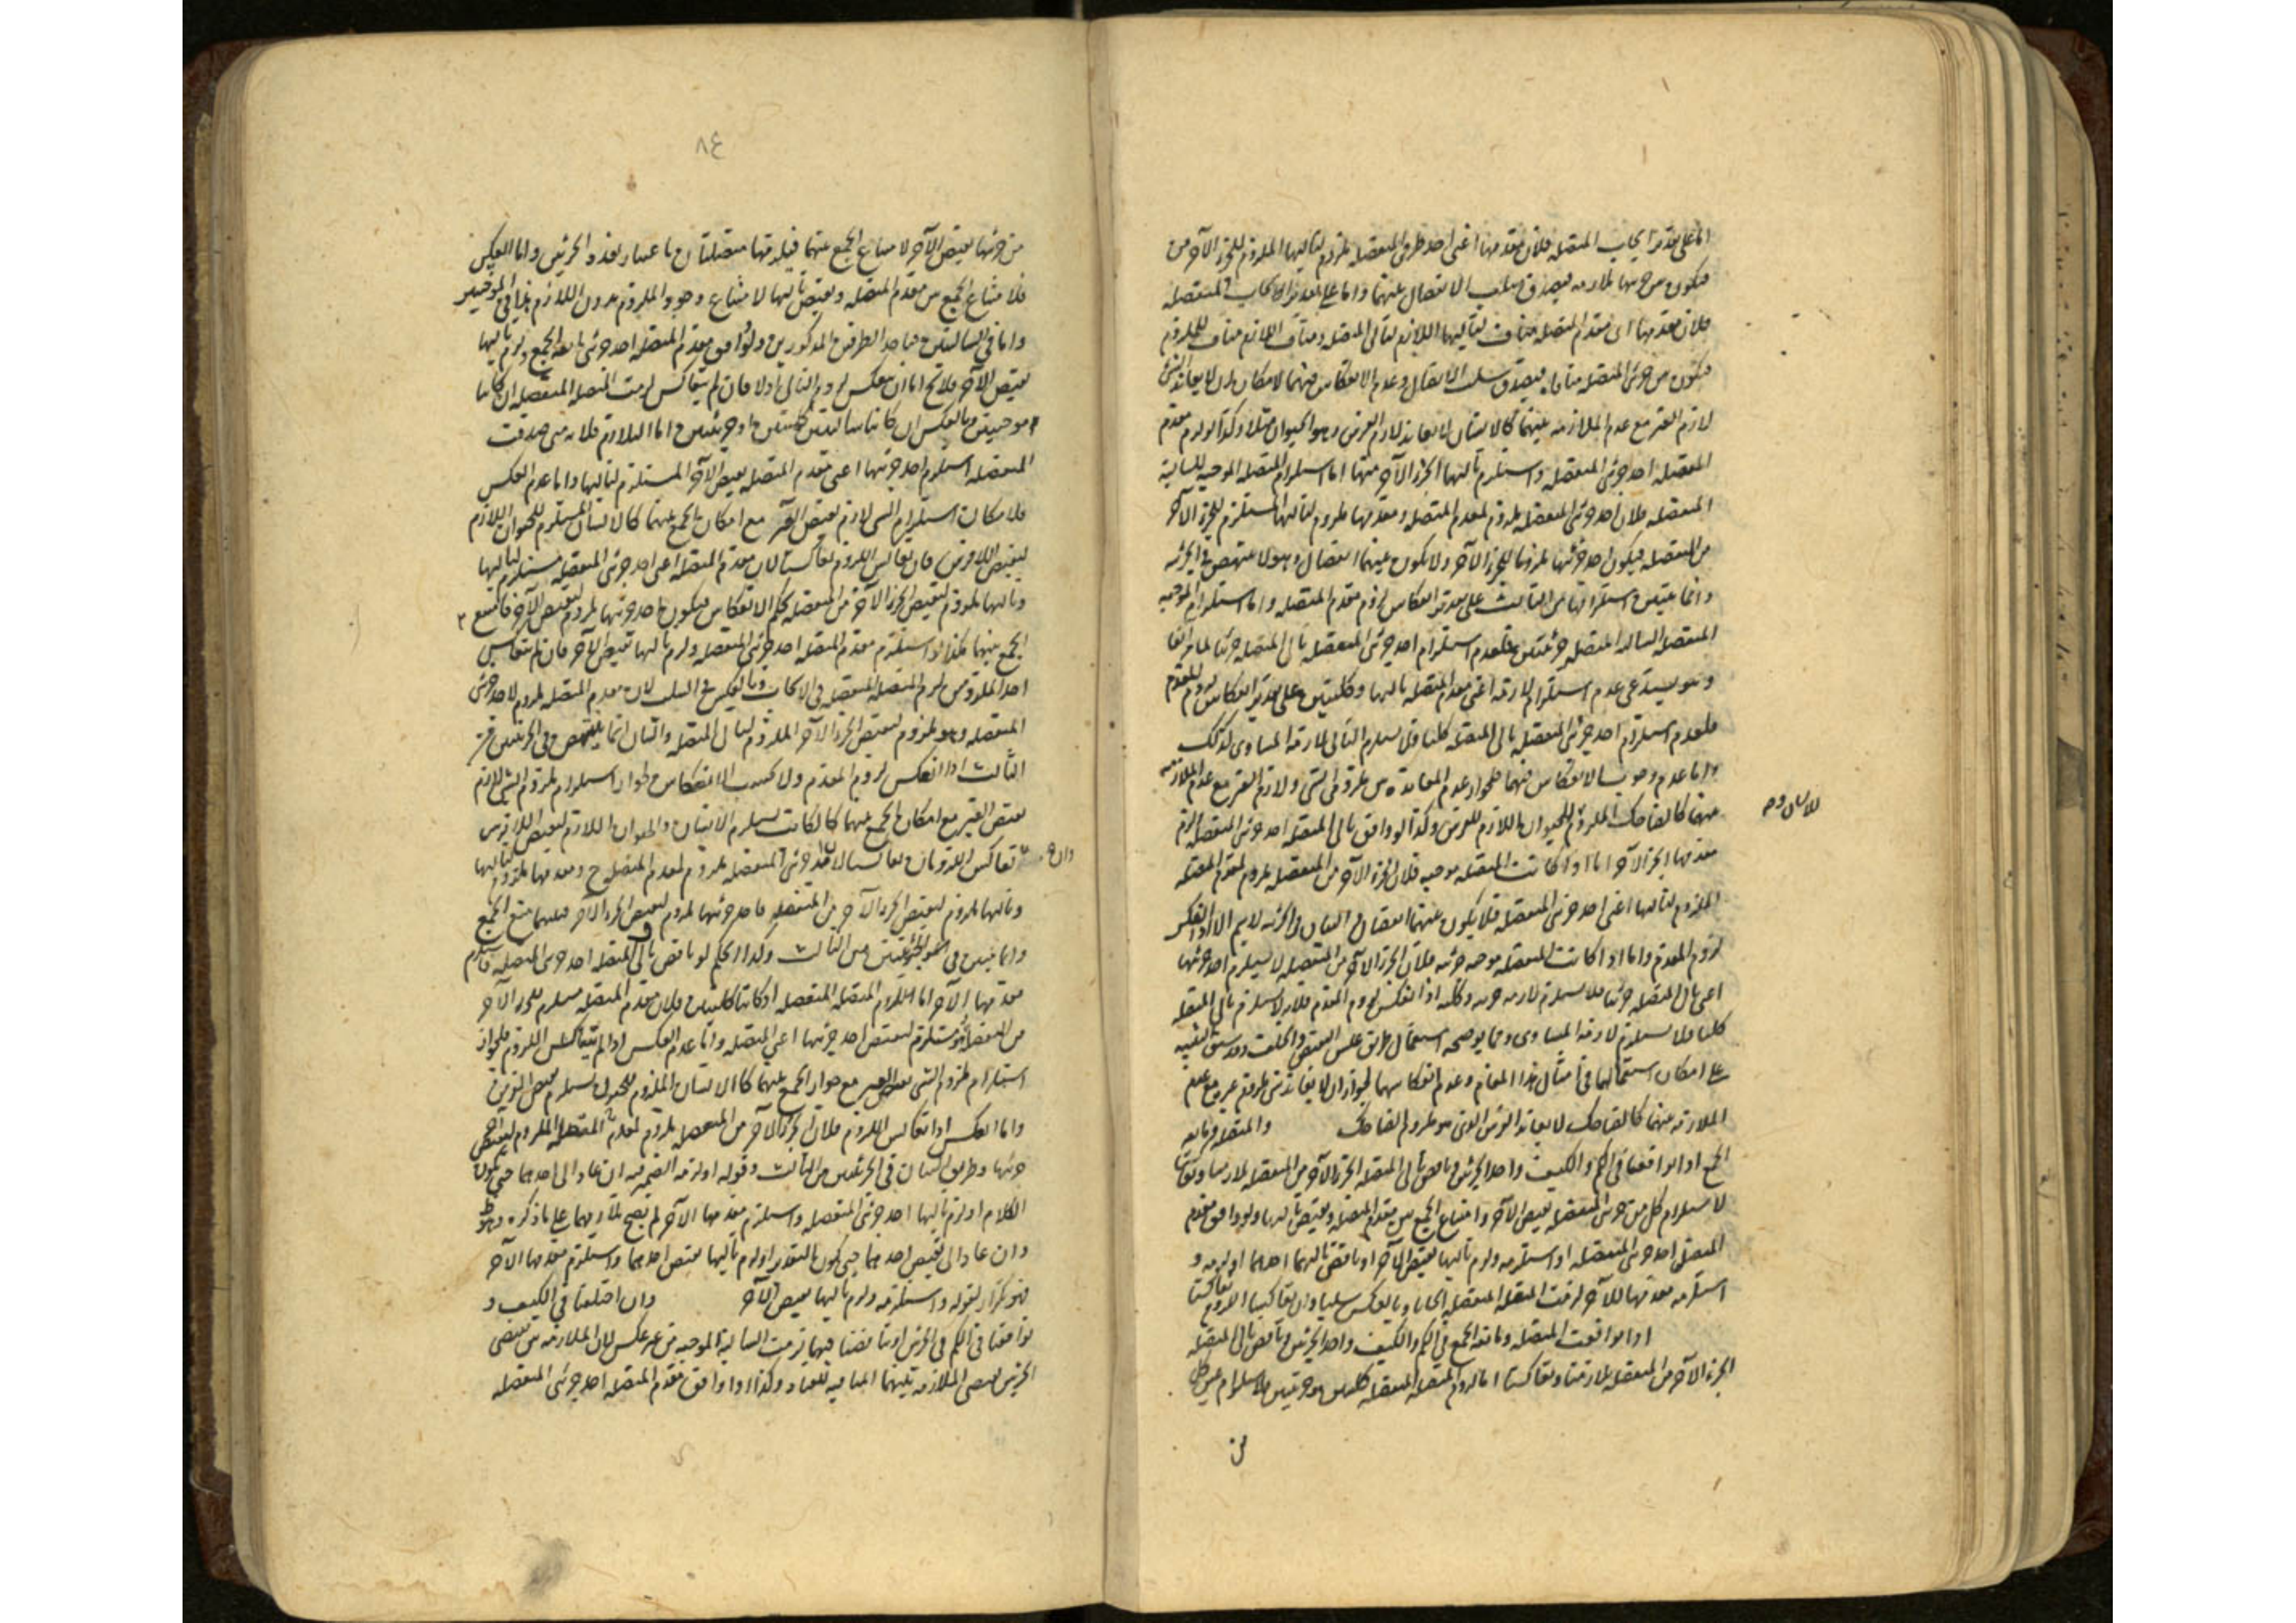 اما على تقدير ايجاب المتصله فلان مقدمها اعنى احد طرفى المنفصله ملزوم لتاليها الملزوم للجزء الآخر من
فيكون بين جزئيها ملازمه فيصدق سلب الانفصال عنهما واما على تقدير ايجاب المنفصله
فلان مقدمها اى مقدم المتصله مناف لتاليها اللازم لتالى المتصله ومنافى اللازم مناف للملزوم
فيكون بين جزئى المتصله منافاه فيصدق سلب الاتصال وعدم الانعكاس فيهما لامكان ان لا يعاند الشئ
لازم الغير مع عدم الملازمه بينهما كالانسان لا يعاند لازم الفرس وهو الحيوان مثلا وكذا لو لزم مقدم
المتصله احد جزئى المنفصله واستلزم تاليها الجزء الآخر منها اما استلزام المتصله الموجبه للسالبه
المنفصله فلان احد جزئى المنفصله ملزوم لمقدم المتصله ومقدمها ملزوم لتاليها المستلزم للجزء الآخر
من المنفصله فيكون احد جزئيها ملزوما للجزء الآخر ولا يكون بينهما انفصال وهو لا ينتهض فى الجزئيه
وانما يتبين استلزامها من الثالث على تقدير انعكاس لزوم مقدم المتصله واما استلزام الموجبه
المنفصله السالبه المتصله جزئيتين فلعدم استلزام احد جزئى المنفصله تالى المتصله جزئيا لما مر آنفا
وهو يستدعى عدم استلزام لازمه اعنى مقدم المتصله تاليها وكليتين على تقدير انعكاس لزوم المقدم
فلعدم استلزام احد جزئى المنفصله تالى المتصله كليا فلا يستلزم التالى لازمه المساوى كذلك
واما عدم وجوب الانعكاس فيهما فلجواز عدم المعانده بين ملزومى الشئ ولازم الغير مع عدم الملازمه
بينهما كالضاحك الملزوم للحيوان اللازم للفرس وكذا لو وافق تالى المتصله احد جزئى المنفصله ولزم
مقدمها الجزء الآخر اما اذا كانت المتصله موجبه فلان الجزء الآخر من المنفصله ملزوم لمقدم المتصله
الملزوم لتاليها اعنى احد جزئى المنفصله فلا يكون بينهما انفصال والبيان فى الجزئيه لا يتم الا اذا انعكس
لزوم المقدم واما اذا كانت المنفصله موجبه جزئيه فلان الجزء الآخر من المنفصله لا يستلزم احد جزئيها
اعنى تالى المتصله جزئيا فلا يستلزم لازمه جزئيه وكليه اذا انعكس لزوم المقدم فلانه لا يستلزم تالى المتصله
كليا فلا يستلزم لازمه المساوى ومما يوضحه استعمال طريق عكس النقيض والخلف وقد سبق التنبيه
على امكان استعمالهما فى امثال هذا المقام وعدم انعكاسهما لجواز ان لا يعاند شئ ملزوم غيره مع عدم
الملازمه بينهما كالضاحك لا يعاند الفرس الذى هو ملزوم الضاحك والمتصله ومانعه
الجمع اذا توافقتا فى الكم والكيف واحد الجزئين وناقض تالى المتصله الجزء الآخر من المنفصله تلازمتا وتعاكستا
لاستلزام كل من جزئى المنفصله نقيض الآخر وامتناع الجمع بين مقدم المتصله ونقيض تاليها ولو وافق مقدم
المتصله احد جزئى المنفصله او استلزمه ولزم تاليها نقيض الآخر او ناقض تاليها احدهما او لزمه و
استلزمه مقدمها للآخر لزمت المتصله المنفصله ايجابا وبالعكس سلبا وان تعاكسا اللزوم تعاكستا
اذا توافقت المتصله ومانعه الجمع فى الكم والكيف واحد الجزئين وناقض تالى المتصله
الجزء الآخر من المنفصله تلازمتا وتعاكستا اما لزوم المتصله المنفصله كليتين موجبتين فلاستلزام عين كل
من
للانسان وه
٨٤
من جزئيها نقيض الآخر لامتناع الجمع بينهما فيلزمها متصلتان باعتبار هذه الجزئين واما العكس
فلامتناع الجمع بين مقدم المتصله ونقيض تاليها لامتناع وجود الملزوم بدون اللازم هذا فى الموجبتين
واما فى السالبتين فبأحد الطرفين المذكورين ولو وافق مقدم المتصله احد جزئى مانعه الجمع ولزم تاليها
نقيض الآخر فلا يخ اما ان ينعكس لزوم التالى اولا فان لم يتعاكس لزمت المتصله المنفصله ان كانتا
موجبتين وبالعكس ان كانتا سالبتين كليتين او جزئيتين اما التلازم فلانه متى صدقت
المنفصله استلزم احد جزئيها اعنى مقدم المتصله نقيض الآخر المستلزم لتاليها واما عدم العكس
فلامكان استلزام الشئ لازم نقيض الغير مع امكان الجمع بينهما كالانسان المستلزم للحيوان اللازم
لنقيض اللافرس فان تعاكس اللزوم تعاكستا لان مقدم المتصله اعنى احد جزئى المنفصله مستلزم لتاليها
وتاليها ملزوم لنقيض الجزء الآخر من المنفصله بحكم الانعكاس فيكون احد جزئيها ملزوم لنقيض الآخر فامتنع
الجمع بينهما وكذا لو استلزم مقدم المتصله احد جزئى المنفصله ولزم تاليها نقيض الآخر فان لم يتعاكس
احد الملزومين لزم المتصله المنفصله فى الايجاب وبالعكس فى السلب لان مقدم المتصله ملزوم لاحد جزئى
المنفصله وهو ملزوم لنقيض الجزء الآخر الملزوم لتالى المتصله والبيان انما ينتهض فى الجزئيتين من
الثالث اذا انعكس لزوم المقدم ولا يجب الانعكاس لجواز استلزام ملزوم الشئ لازم
نقيض الغير مع امكان الجمع بينهما كالكاتب المستلزم الانسان والحيوان اللازم لنقيض اللافرس
وان تعاكس اللزومان تعاكستا لان احد جزئى المنفصله ملزوم لمقدم المتصله ح ومقدمها ملزوم لتاليها
وتاليها ملزوم لنقيض الجزء الآخر من المنفصله فاحد جزئيها ملزوم لنقيض الجزء الآخر فبينهما منع الجمع
وانما يتبين فى الجزئيتين من الثالث وكذا الحكم لو ناقض تالى المتصله احد جزئى المنفصله واستلزم
مقدمها الآخر اما استلزام المتصله المنفصله اذ كانتا كليتين فلان مقدم المتصله مستلزم للجزء الآخر
من المنفصله وهو مستلزم لنقيض احد جزئيها اعنى المتصله واما عدم العكس اذا لم يتعاكس اللزوم فلجواز
استلزام ملزوم الشئ نقيض الغير مع جواز الجمع بينهما كالانسان الملزوم للحيوان يستلزم نقيض الفرس
واما العكس اذا تعاكس اللزوم فلان الجزء الآخر من المنفصله ملزوم لمقدم المتصله الملزوم لنقيض احد
جزئيها وطريق البيان فى الجزئيتين من الثالث وقوله او لزمه الضمير فيه ان عاد الى احدهما حتى يكون
الكلام او لزم تاليها احد جزئى المنفصله واستلزم مقدمها الآخر لم يصح تلازمهما على ما ذكره وهو ظ
وان عاد الى نقيض احدهما حتى يكون التقدير او لزم تاليها نقيض احدهما واستلزم مقدمها الآخر
فهو تكرار لقوله واستلزمه ولزم تاليها نقيض الآخر وان اختلفتا فى الكيف و
توافقتا فى الكم فى الجزئين او تناقضتا فيهما لزمت السالبه الموجبه من غير عكس لان الملازمه بين نقيضى
الجزئين يقتضى الملازمه بينهما المنافيه للعناد وكذا اذا وافق مقدم المتصله احد جزئى المنفصله